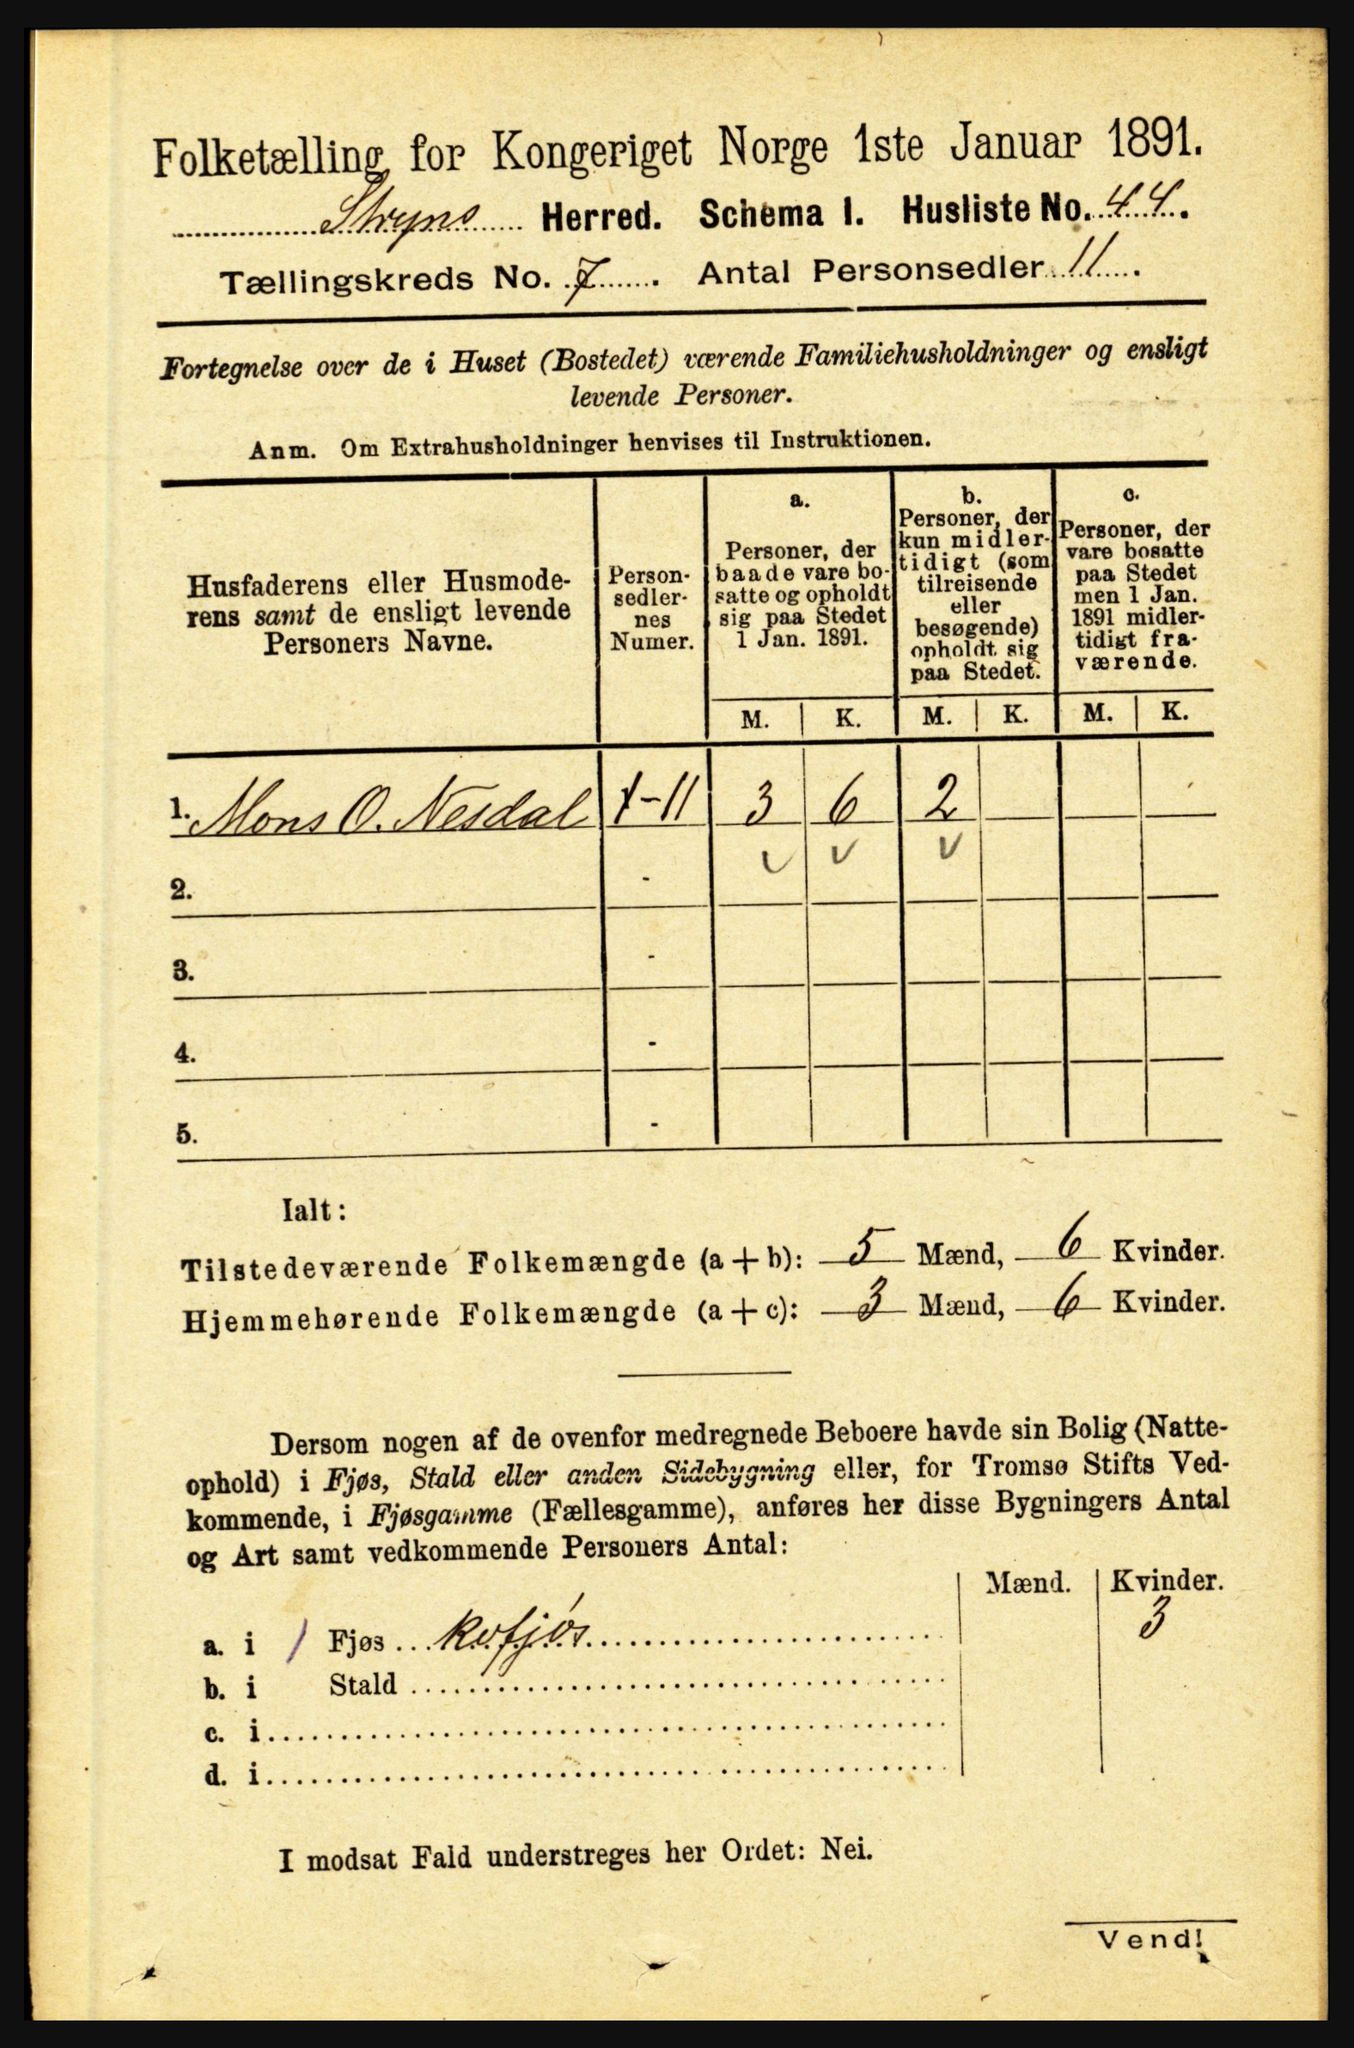 Folketælling for Kongeriget Norge 1ste Januar 1891.
Stryns Herred. Schema I. Husliste No. 44.
Tællingskreds No. 7. Antal Personsedler 11.
Fortegnelse over de i Huset (Bostedet) værende Familiehusholdninger og ensligt
levende Personer.
Anm. Om Extrahusholdninger henvises til Instruktionen.
Husfaderens eller Husmode-
rens samt de ensligt levende
Personers Navne.
Person-
sedler-
nes
Numer.
a.
Personer, der
baade vare bo-
satte og opholdt
sig paa Stedet
1 Jan. 1891.
b.
Personer, der
kun midler-
tidigt (som
tilreisende
eller
besøgende)
opholdt sig
paa Stedet.
c.
Personer, der
vare bosatte
paa Stedet
men 1 Jan.
1891 midler-
tidigt fra-
værende.
M. K. M. K. M. K.
1. Mons O. Nesdal 1-11 3 6 2
2. -
3. -
4. -
5. -
Ialt:
Tilstedeværende Folkemængde (a+b): 5 Mænd, 6 Kvinder.
Hjemmehørende Folkemængde (a+c): 3 Mænd, 6 Kvinder.
Dersom nogen af de ovenfor medregnede Beboere havde sin Bolig (Natte-
ophold) i Fjøs, Stald eller anden Sidebygning eller, for Tromsø Stifts Ved-
kommende, i Fjøsgamme (Fællesgamme), anføres her disse Bygningers Antal
og Art samt vedkommende Personers Antal:
Mænd. Kvinder.
a. i 1 Fjøs Kufjøs 3
b. i Stald
c. i
d. i
I modsat Fald understreges her Ordet: Nei.
Vend!